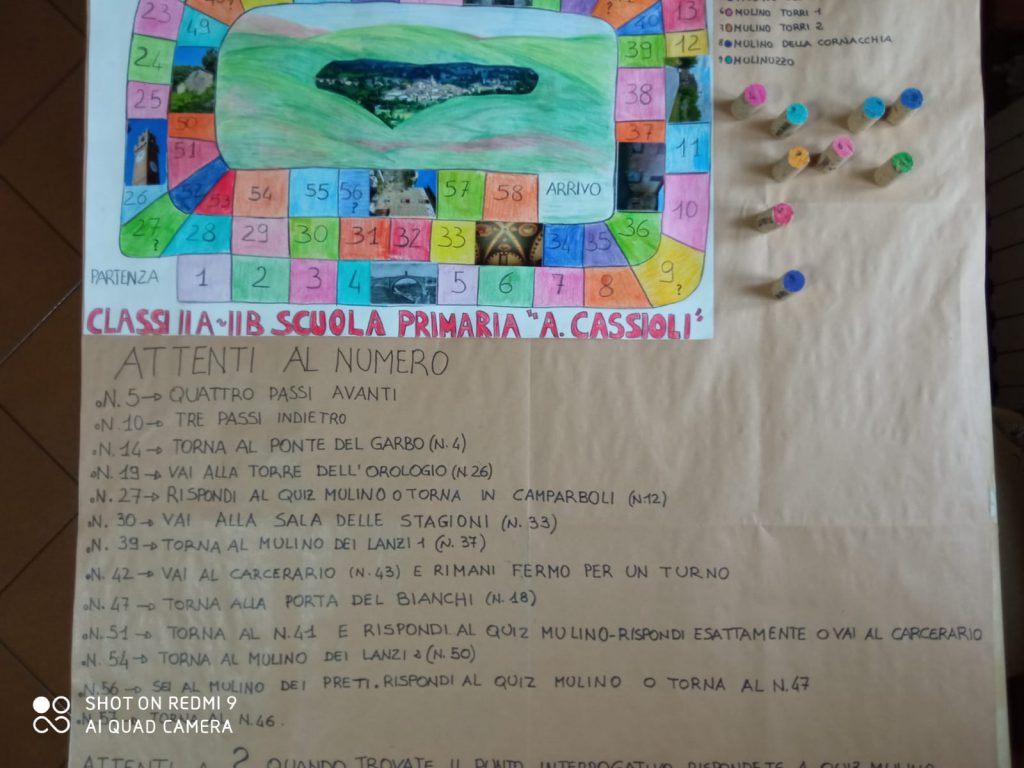 MULINO TORRI 1
MULINO TORRI 2
MULINO DELLA CORNACCHIA
MULINUZZO
23
24
25
26
27 ?
28
29
30
31
32
33
34
35
36
37
38
39
40
13
12
11
10
49
50
51
52
53
54
55
56 ?
57
58
ARRIVO
PARTENZA
1
2
3
4
5
6
7
8
9 ?
CLASSI IIA~IIB SCUOLA PRIMARIA "A. CASSIOLI"
ATTENTI AL NUMERO
N. 5→ QUATTRO PASSI AVANTI
N. 10→ TRE PASSI INDIETRO
N. 14→ TORNA AL PONTE DEL GARBO (N. 4)
N. 19→ VAI ALLA TORRE DELL'OROLOGIO (N.26)
N. 27→ RISPONDI AL QUIZ MULINO O TORNA IN CAMPARBOLI (N12)
N. 30→ VAI ALLA SALA DELLE STAGIONI (N. 33)
N. 39→ TORNA AL MULINO DEI LANZI 1 (N. 37)
N. 42→ VAI AL CARCERARIO (N. 43) E RIMANI FERMO PER UN TURNO
N. 47→ TORNA ALLA PORTA DEL BIANCHI (N. 18)
N. 51→ TORNA AL N.41 E RISPONDI AL QUIZ MULINO-RISPONDI ESATTAMENTE O VAI AL CARCERARIO
N. 54→ TORNA AL MULINO DEI LANZI 2 (N. 50)
N. 56→ SEI AL MULINO DEI PRETI. RISPONDI AL QUIZ MULINO O TORNA AL N.47
N. 57→ TORNA AL N.46.
ATTENTI A ? QUANDO TROVATE IL PUNTO INTERROGATIVO RISPONDETE A QUIZ MULINO
SHOT ON REDMI 9
AI QUAD CAMERA